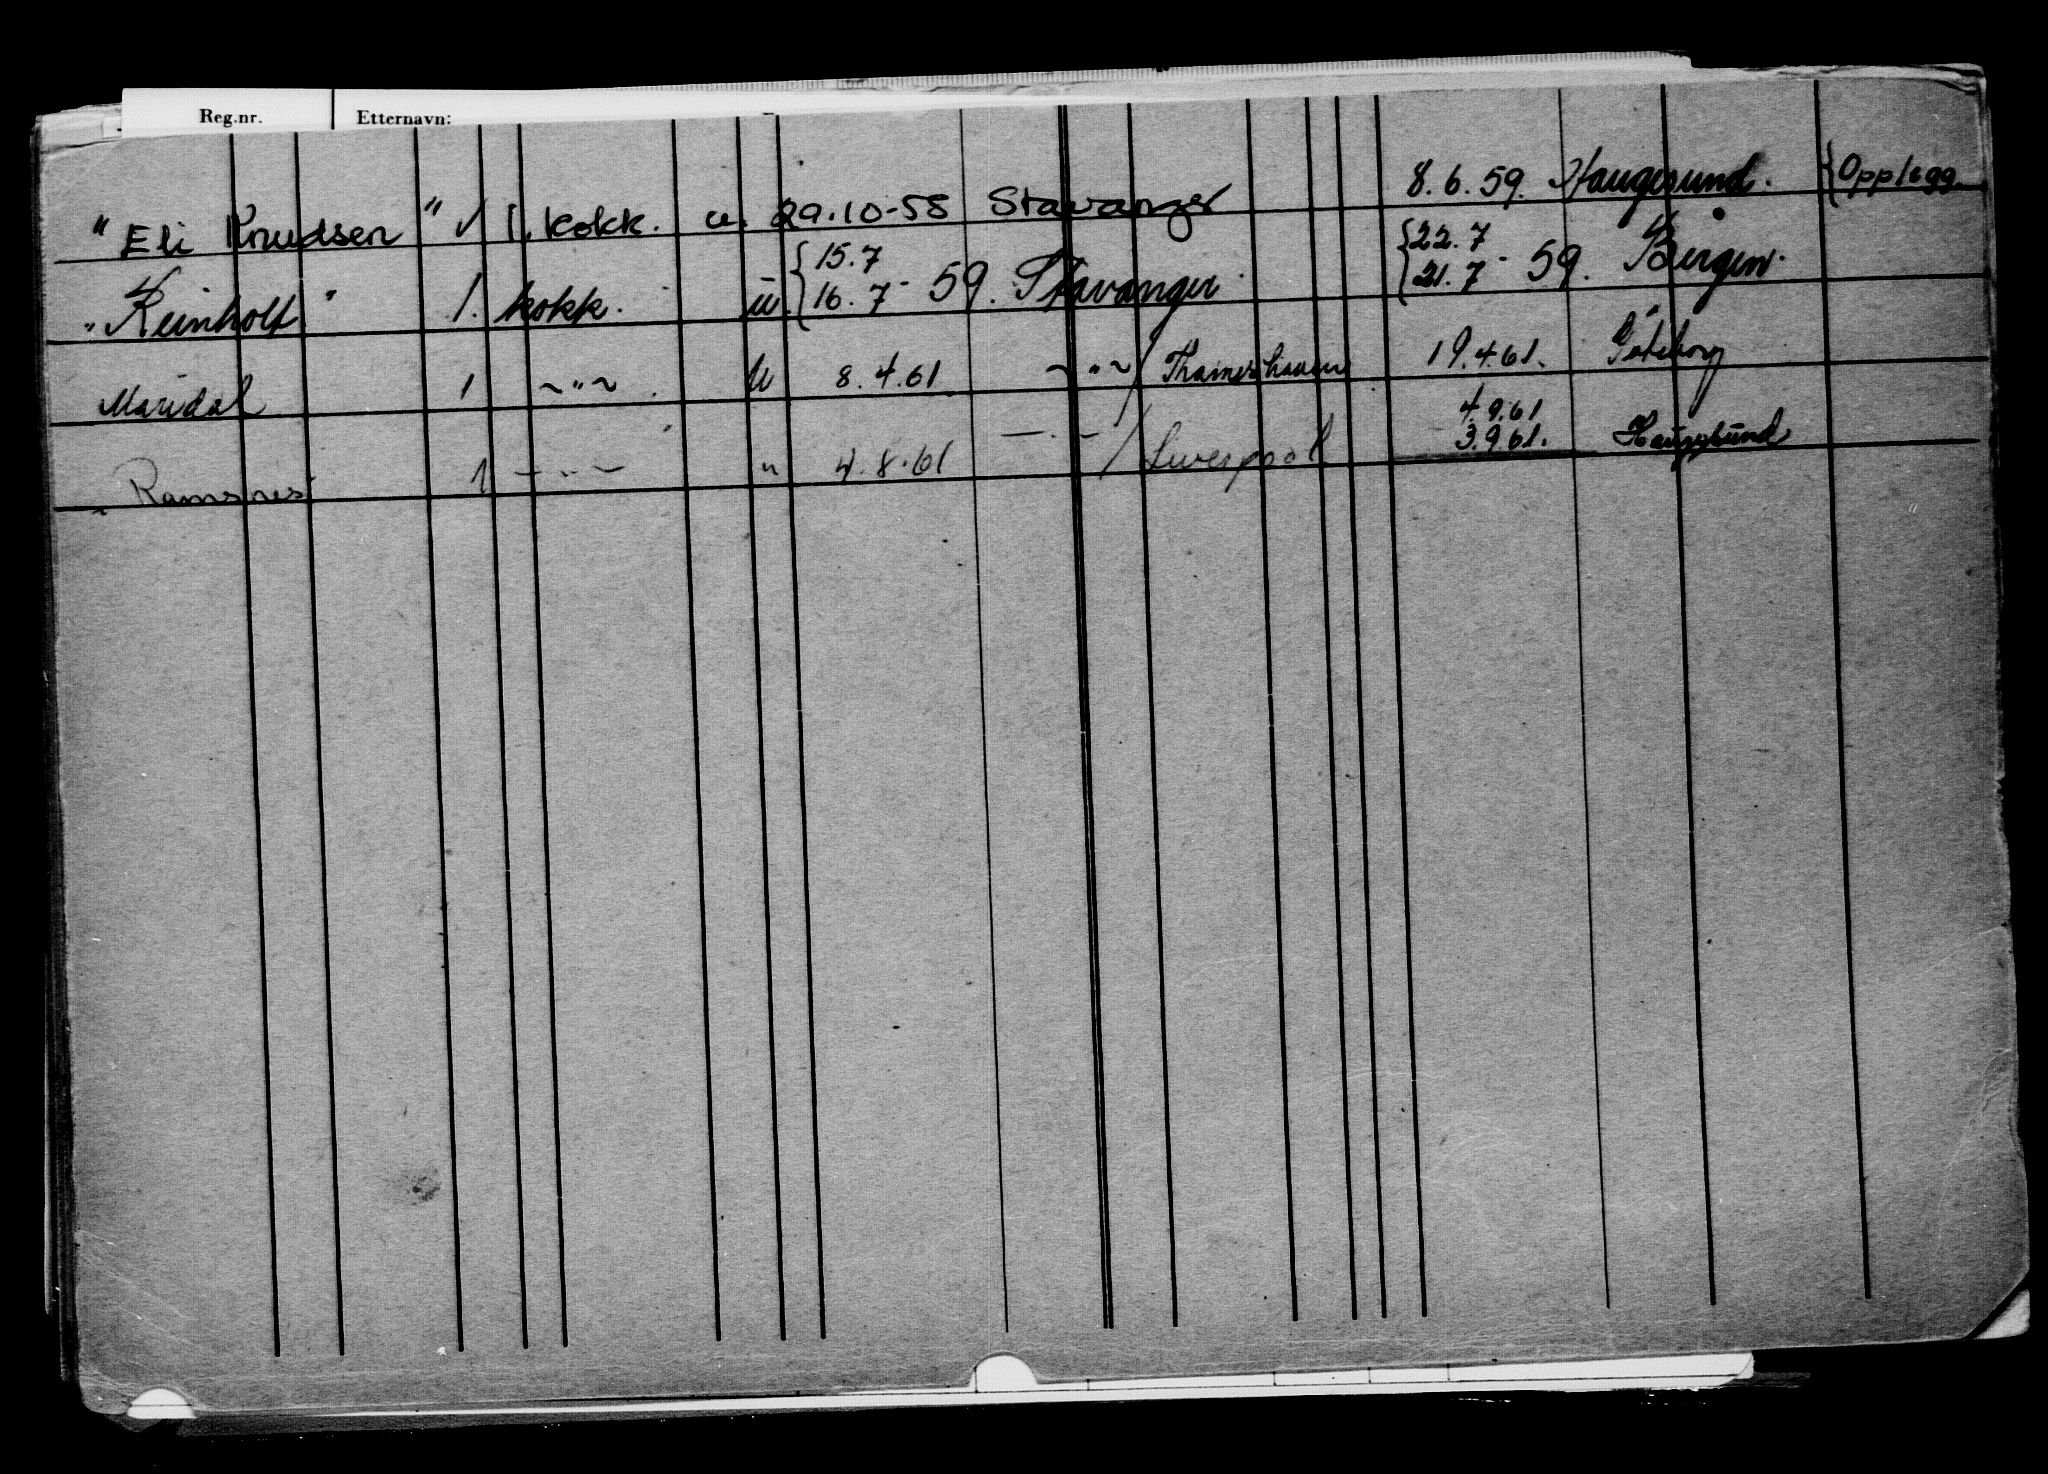 Reg.nr. Etternavn:
" Eli Knudsen " 1. kokk. u. 29.10-58 Stavanger 8.6.59. Haugesund. { Opplegg.
" Reinholt " 1. kokk. u. { 15.7 16.7 - 59. Stavanger. { 22.7 21.7 - 59. Bergen.
Maridal 1 ~"~ u 8.4.61 ~"~ / Thamshavn 19.4.61. Göteborg
4.9.61
Ramsnes 1 -"- " 4.8.61 -"- / Liverpool 3.9.61. Haugesund